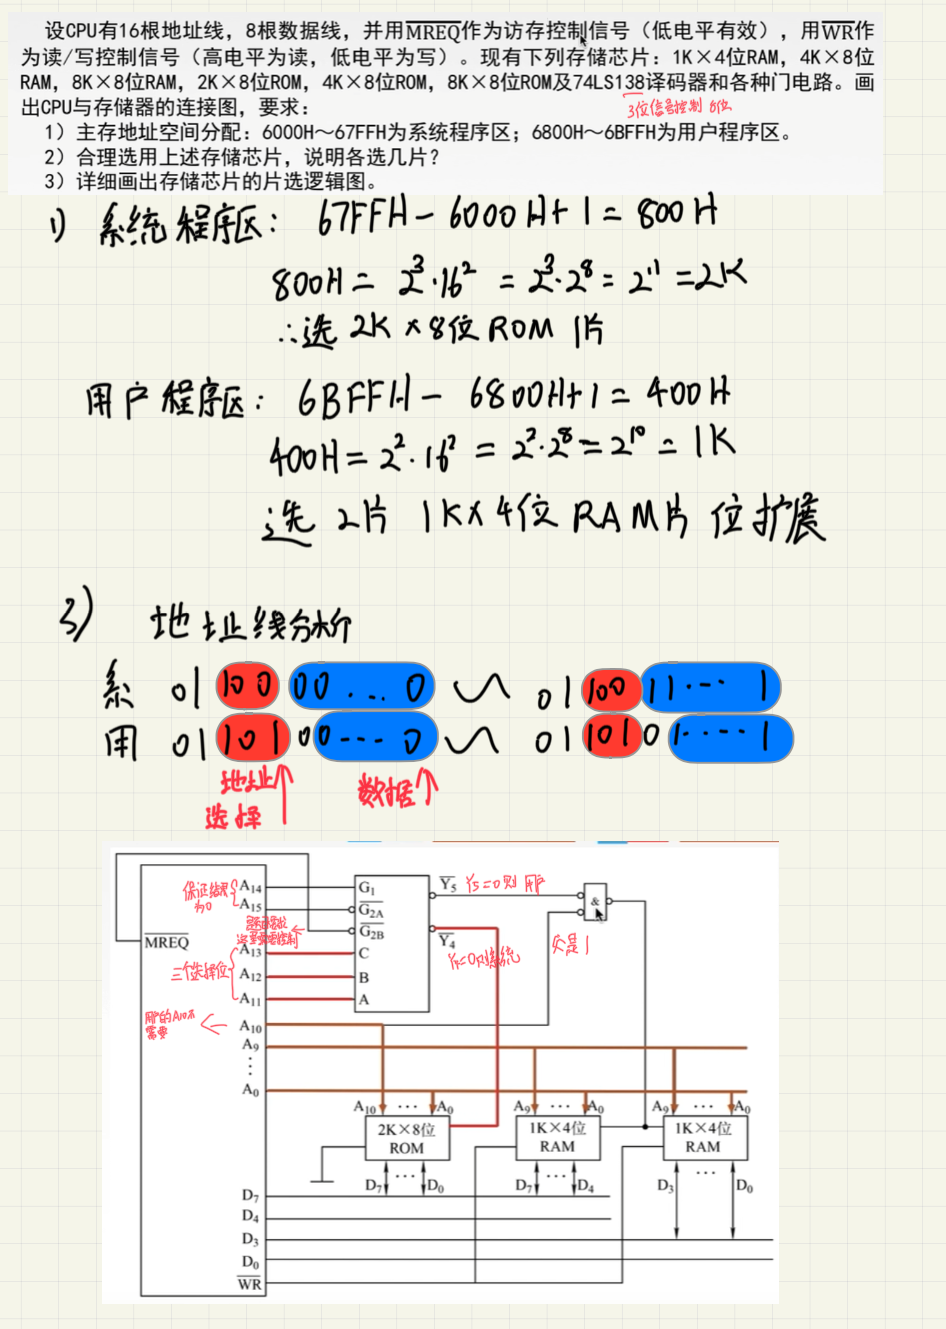 设CPU有16根地址线，8根数据线，并用MREQ作为访存控制信号（低电平有效），用WR作
为读/写控制信号（高电平为读，低电平为写）。现有下列存储芯片：1K×4位RAM，4K×8位
RAM，8K×8位RAM，2K×8位ROM，4K×8位ROM，8K×8位ROM及74LS138译码器和各种门电路。画
出CPU与存储器的连接图，要求：
3位信号控制 8位
1）主存地址空间分配：6000H～67FFH为系统程序区；6800H～6BFFH为用户程序区。
2）合理选用上述存储芯片，说明各选几片？
3）详细画出存储芯片的片选逻辑图。
1) 系统程序区： 67FFH - 6000H + 1 = 800H
800H = 2³·16² = 2³·2⁸ = 2¹¹ = 2K
∴选 2K×8位 ROM 1片
用户程序区： 6BFFH - 6800H+1 = 400H
400H = 2²·16² = 2²·2⁸ = 2¹⁰ = 1K
选 2片 1K×4位 RAM片 位扩展
3) 地址线分析
系 01 100 00...0 ~ 01 100 11...1
用 01 101 00...0 ~ 01 101 01....1
地址↑ 数据↑
选择
保证结果
为0
A14
A15
G1
G2A
G2B
Y5
Y5=0则 用户
&
MREQ
三个选择位
A13
A12
A11
C
B
A
Y4
Y4=0则系统
用户的A10不
需要
A10
A9
⋮
A0
A10 ··· A0
A9 ··· A0
A9 ··· A0
2K×8位
ROM
1K×4位
RAM
1K×4位
RAM
D7 ··· D0
D7 ··· D4
D3 ··· D0
D7
D4
D3
D0
WR